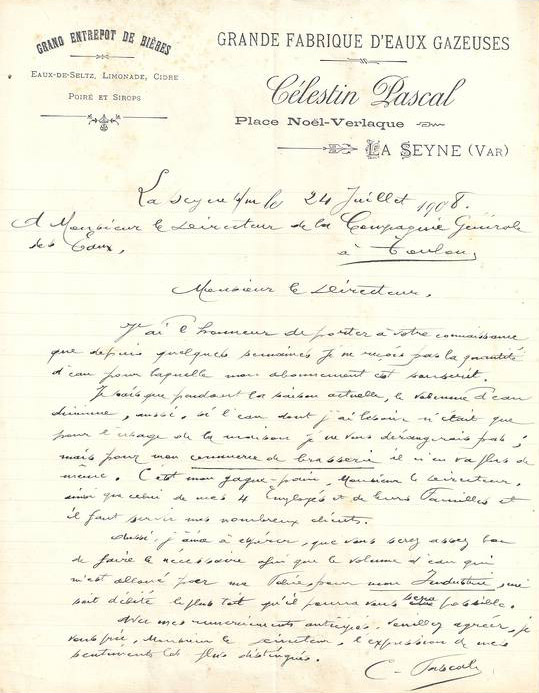 GRAND ENTREPOT DE BIÈRES
EAUX-DE-SELTZ, LIMONADE, CIDRE
POIRÉ ET SIROPS
GRANDE FABRIQUE D'EAUX GAZEUSES
Célestin Pascal
Place Noël-Verlaque
LA SEYNE (VAR)
La Seyne s/m le 24 Juillet 1908.
A Monsieur le Directeur de la Compagnie Générale
des Eaux,
à Toulon,
Monsieur le Directeur,
J'ai l'honneur de porter à votre connaissance
que depuis quelques semaines je ne reçois pas la quantité
d'eau pour laquelle mon abonnement est souscrit.
Je sais que pendant la saison actuelle, le volume d'eau
diminue, aussi, si l'eau dont j'ai besoin n'était que
pour l'usage de la maison je ne vous dérangerais pas ;
mais pour mon commerce de brasserie il n'en va plus de
même. C'est mon gagne-pain, Monsieur le Directeur,
ainsi que celui de mes 4 Employés et de leurs Familles et
il faut servir mes nombreux clients.
Aussi j'aime à espérer, que vous serez assez bon
de faire le nécessaire afin que le volume d'eau qui
m'est alloué par ma Police, pour mon Industrie, me
soit débité le plus tôt qu'il pourra vous sera possible.
Avec mes remerciements anticipés, veuillez agréer, je
vous prie, Monsieur le Directeur, l'expression de mes
sentiments les plus distingués.
C. Pascal